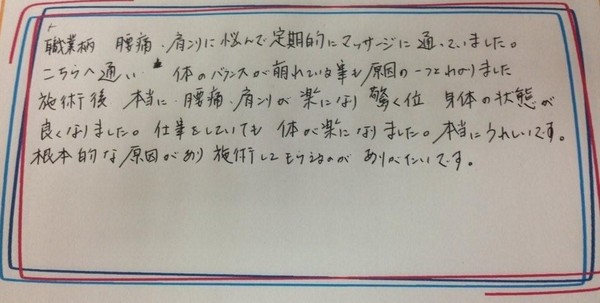 職業柄 腰痛・肩こりに悩んで定期的にマッサージに通っていました。
こちらへ通い 体のバランスが崩れている事も原因の一つとわかりました
施術後 本当に 腰痛・肩こりが 楽になり 驚く位 身体の状態が
良くなりました。仕事をしていても 体が楽になりました。本当にうれしいです。
根本的な原因があり 施術してもらえるのが ありがたいです。